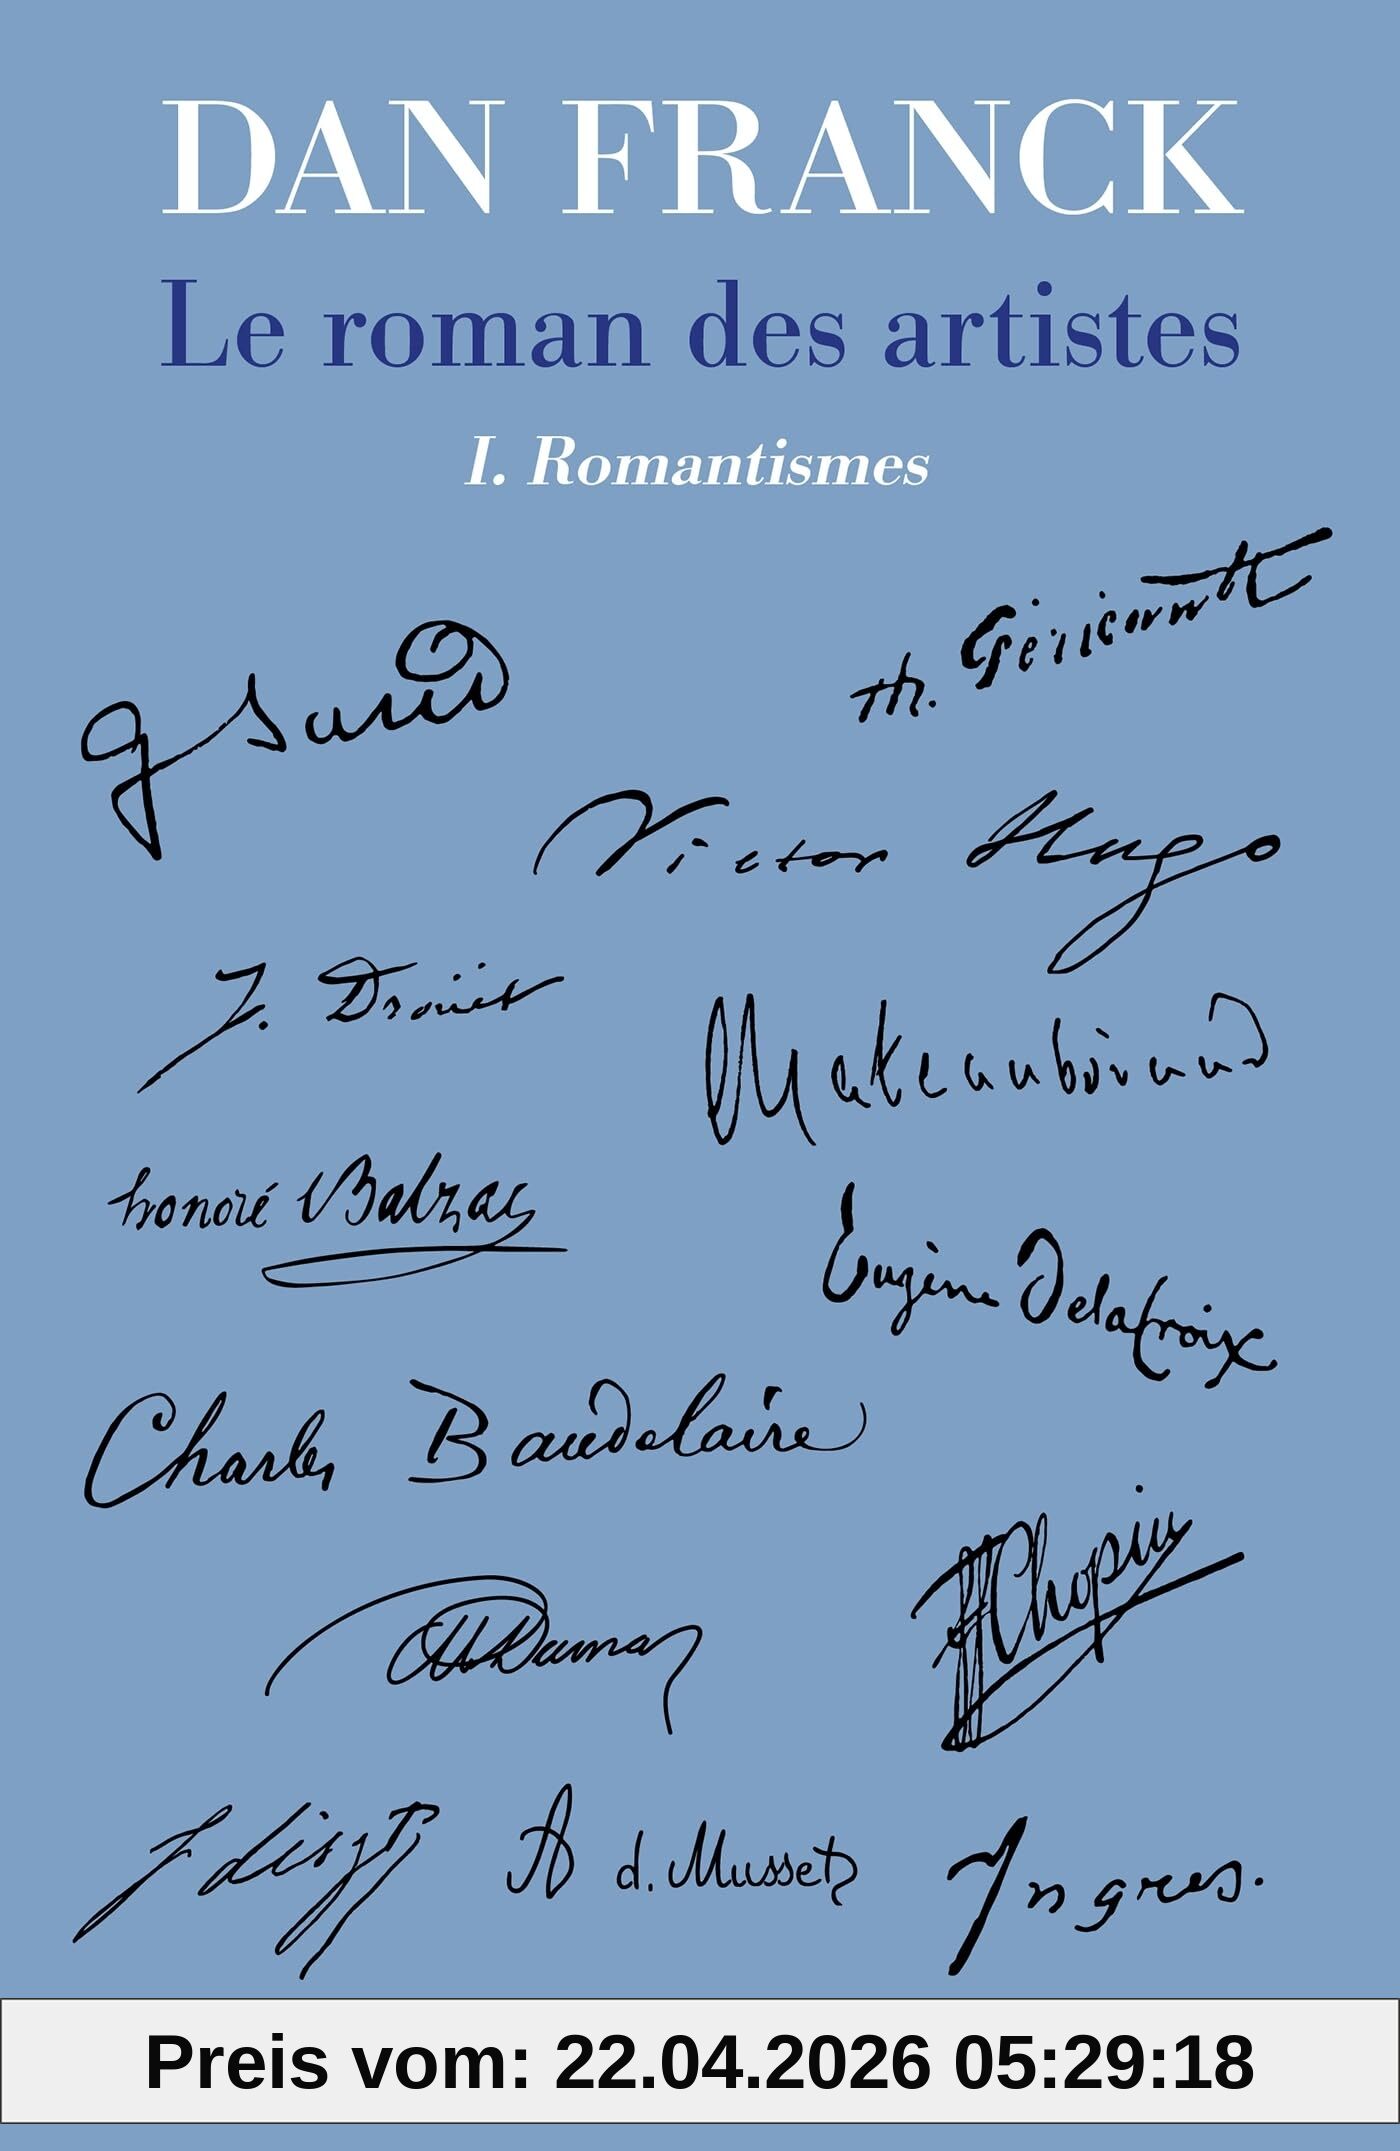 DAN FRANCK
Le roman des artistes
I. Romantismes
Th. Géricault
G Sand
Victor Hugo
J. Droüet
Chateaubriand
honoré Balzac
Eugène Delacroix
Charles Baudelaire
FChopin
Al Dumas
F Liszt
A d. Musset
Ingres.
Preis vom: 22.04.2026 05:29:18